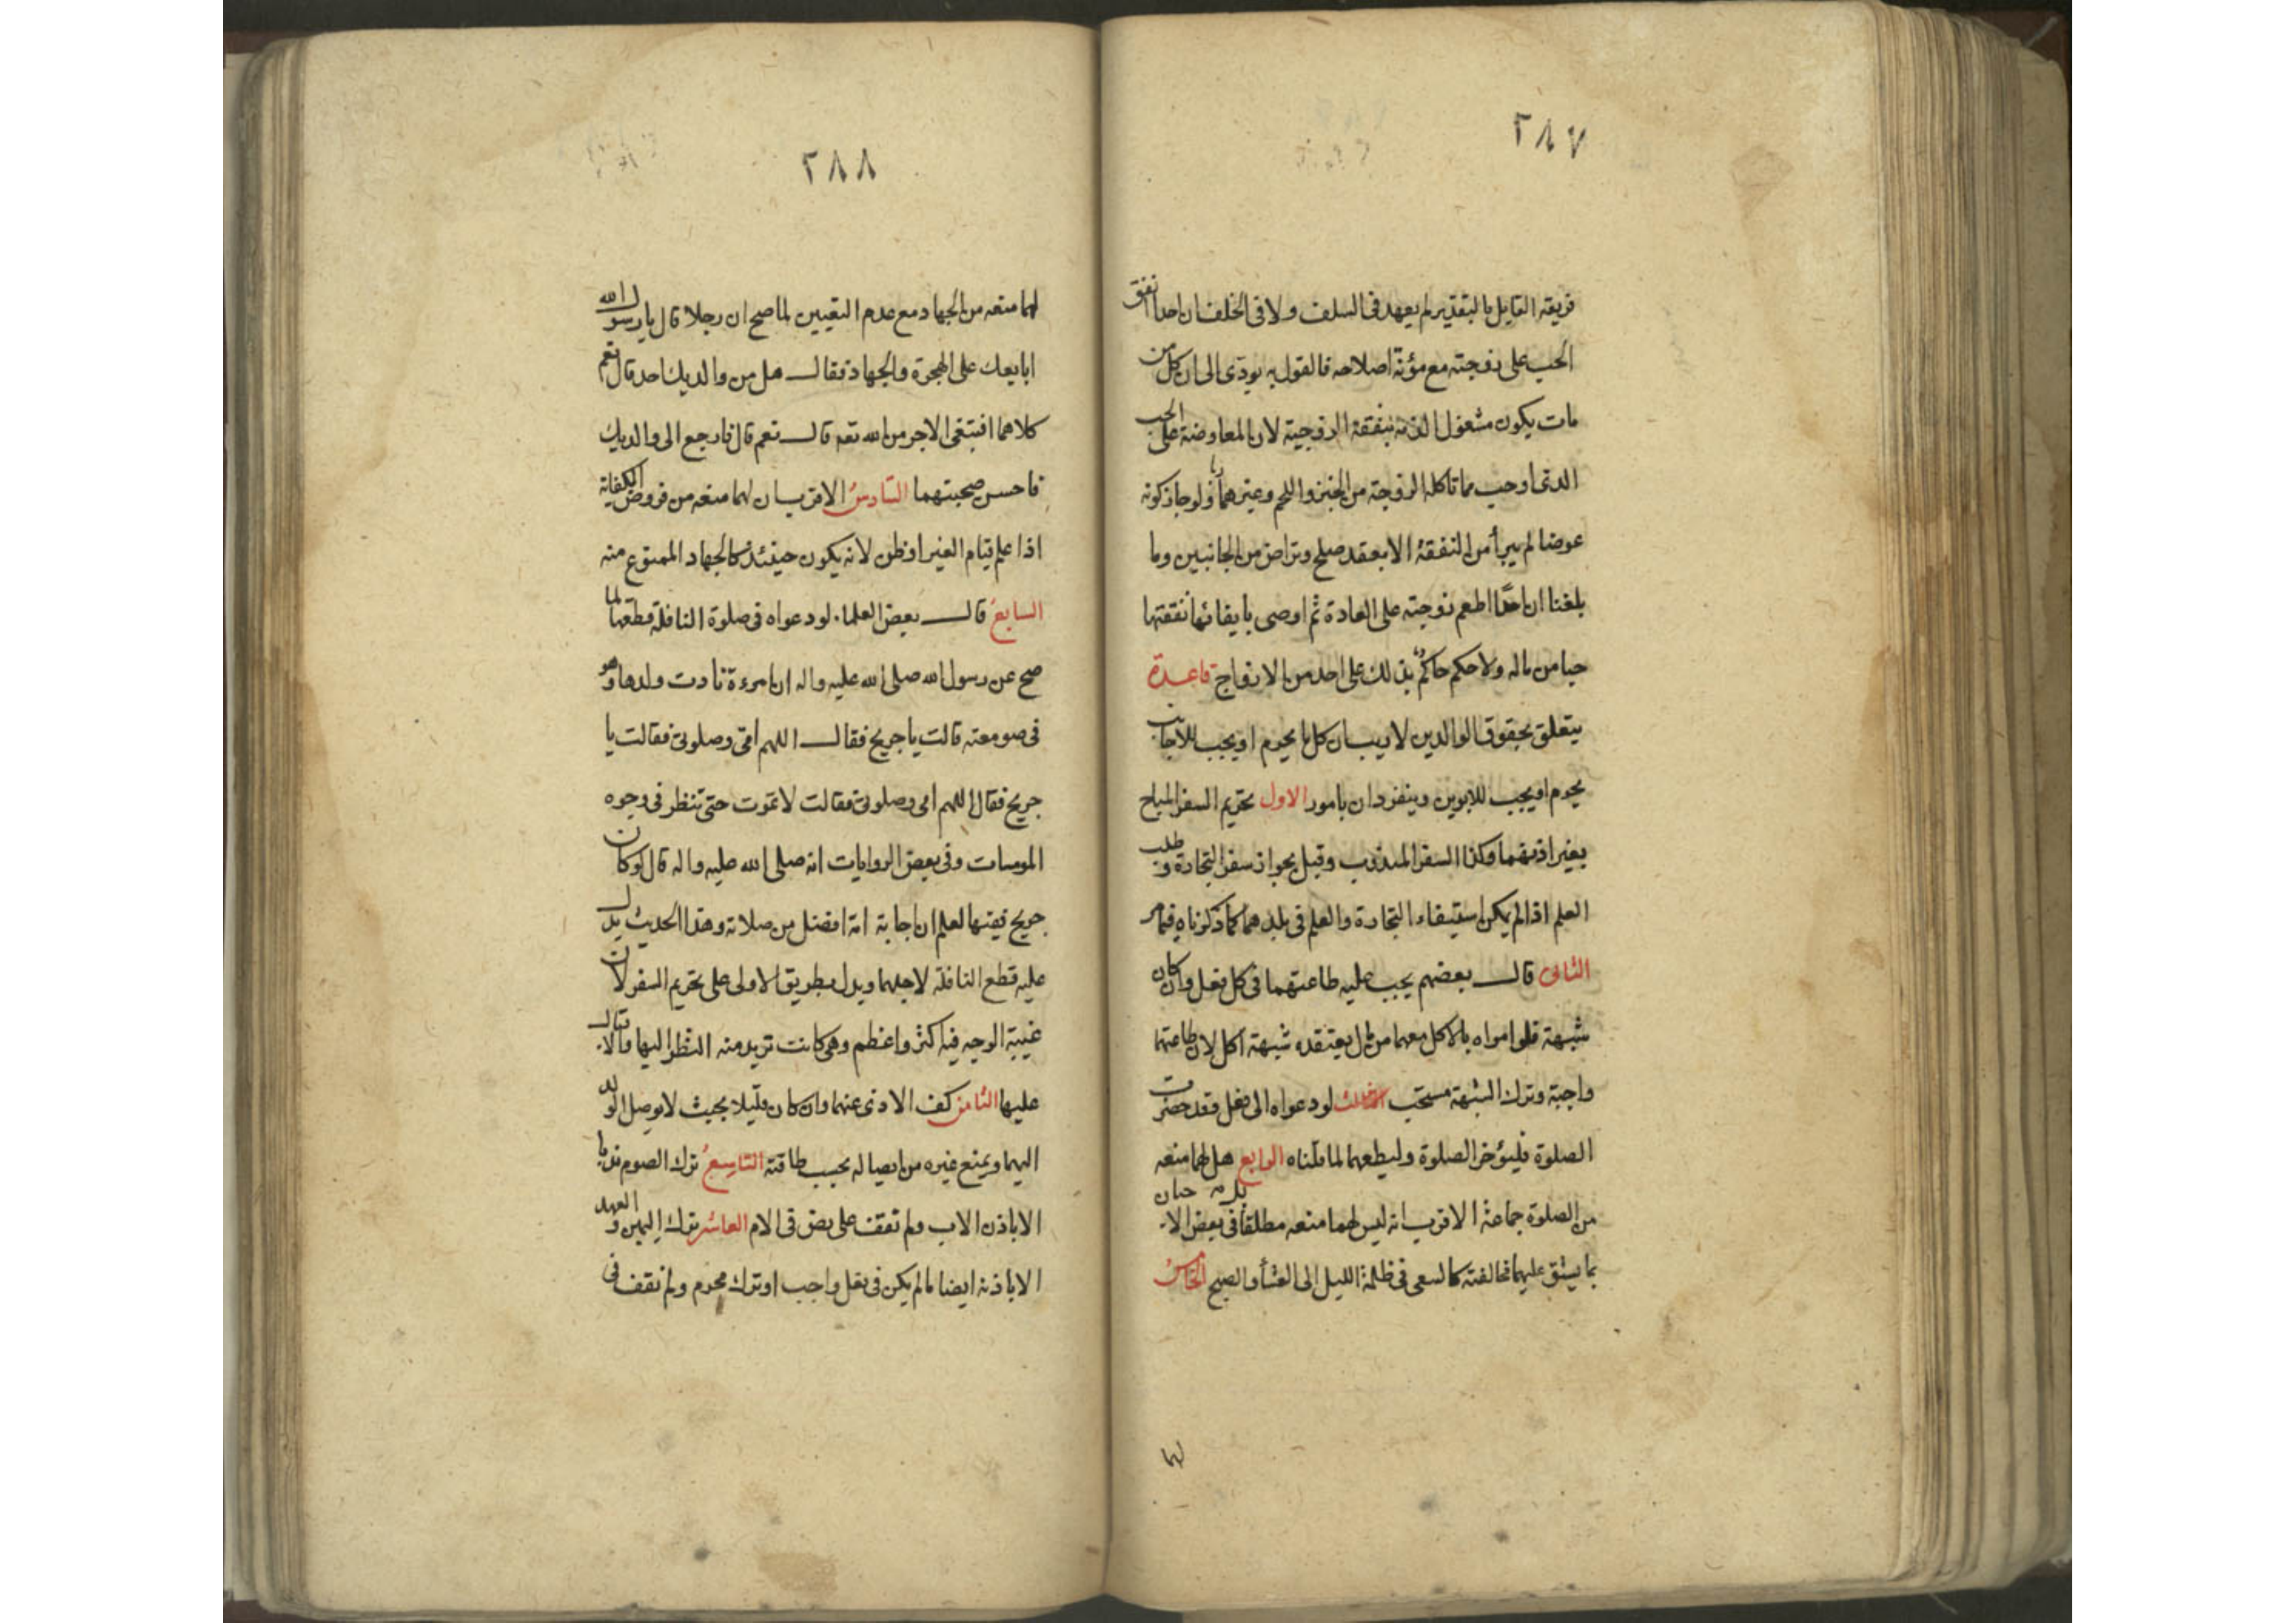 ٢٨٧
فريقه القايل بالتقدير لم يعهد فى السلف ولا فى الخلف ان احدا انفق
الحب على زوجته مع مؤنة اصلاحه فالقول به يودى الى ان كل من
مات يكون مشغول الذمة بنفقة الزوجية لان المعاوضة على الحب
الذى اوجب بما تاكله الزوجة من الخبز واللحم وغيرهما ربا ولو جاز كونه
عوضا لم يبرأ من النفقة الا بعقد صلح وتراض من الجانبين وما
بلغنا ان احدا اطعم زوجته على العادة ثم اوصى بايفائها نفقتها
حبا من ماله ولا حكم حاكم بذلك على احد من الازواج قاعدة
يتعلق بحقوق الوالدين لا ريب ان كل ما يحرم او يجب للاجانب
يحرم او يجب للابوين وينفردان بامور الاول تحريم السفر المباح
بغير اذنهما وكذا السفر المندوب وقيل بجواز سفر التجارة و طلب
العلم اذا لم يكن استيفاء التجارة والعلم فى بلدهما كما ذكرناه فيما مر
الثانى قال بعضهم يجب عليه طاعتهما فى كل فعل وان كان
شبهة فلو امراه بالاكل معهما من مال يعتقده شبهة اكل لان طاعتهما
واجبة وترك الشبهة مستحب الثالث لو دعواه الى فعل وقد حضرت
الصلوة فليؤخر الصلوة وليطعهما لما قلناه الرابع هل لهما منعه
من الصلوة جماعة الاقرب انه ليس لهما منعه مطلقا بل فى بعض الاحيان
بما يشق عليهما مخالفته كالسعى فى ظلمة الليل الى العشا والصبح الخامس
لهما
٢٨٨
لهما منعه من الجهاد مع عدم التعيين لما صح ان رجلا قال يا رسول الله
ابايعك على الهجرة والجهاد فقال هل من والديك احد قال نعم
كلاهما افتبتغى الاجر من الله تعم قال نعم قال فارجع الى والديك
فاحسن صحبتهما السادس الاقرب ان لهما منعه من فروض الكفاية
اذا علم قيام الغير او ظن لانه يكون حينئذ كالجهاد الممنوع منه
السابع قال بعض العلماء لو دعواه فى صلوة النافلة قطعها لما
صح عن رسول الله صلى الله عليه واله ان امرءة نادت ولدها وهو
فى صومعته قالت يا جريح فقال اللهم امى وصلوتى فقالت يا
جريح فقال اللهم امى وصلوتى فقالت لا تموت حتى تنظر فى وجوه
المومسات وفى بعض الروايات انه صلى الله عليه واله قال لو كان
جريح فقيها لعلم ان اجابة امه افضل من صلاته وهذا الحديث يدل
عليه قطع النافلة لاجلهما ويدل بطريق الاولى على تحريم السفر لان
غيبة الوجه فيه اكثر واعظم وهى كانت تريد منه النظر اليها والاقبال
عليها الثامن كف الاذى عنهما وان كان قليلا بحيث لا يوصل الولد
اليهما ويمنع غيره من ايصاله بحسب طاقته التاسع ترك الصوم ندبا
الا باذن الاب ولم نقف على نص فى الام العاشر ترك اليمين و العهد
الا باذنه ايضا ما لم يكن فى فعل واجب او ترك محرم ولم نقف فى